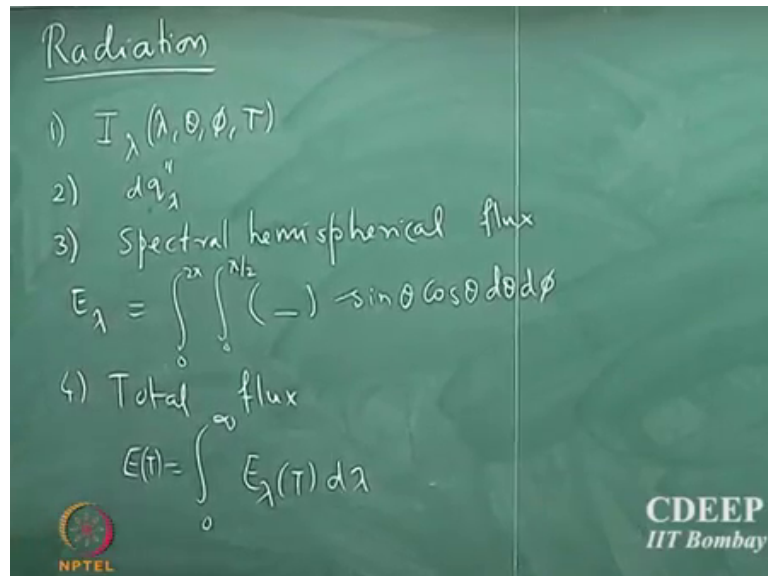 Radiation
1) I_λ (λ, θ, φ, T)
2) dq"_λ
3) Spectral hemispherical flux
E_λ = ∫_0^{2π} ∫_0^{π/2} (_) sinθ cosθ dθ dφ
4) Total flux
E(T) = ∫_0^∞ E_λ(T) dλ
NPTEL
CDEEP
IIT Bombay